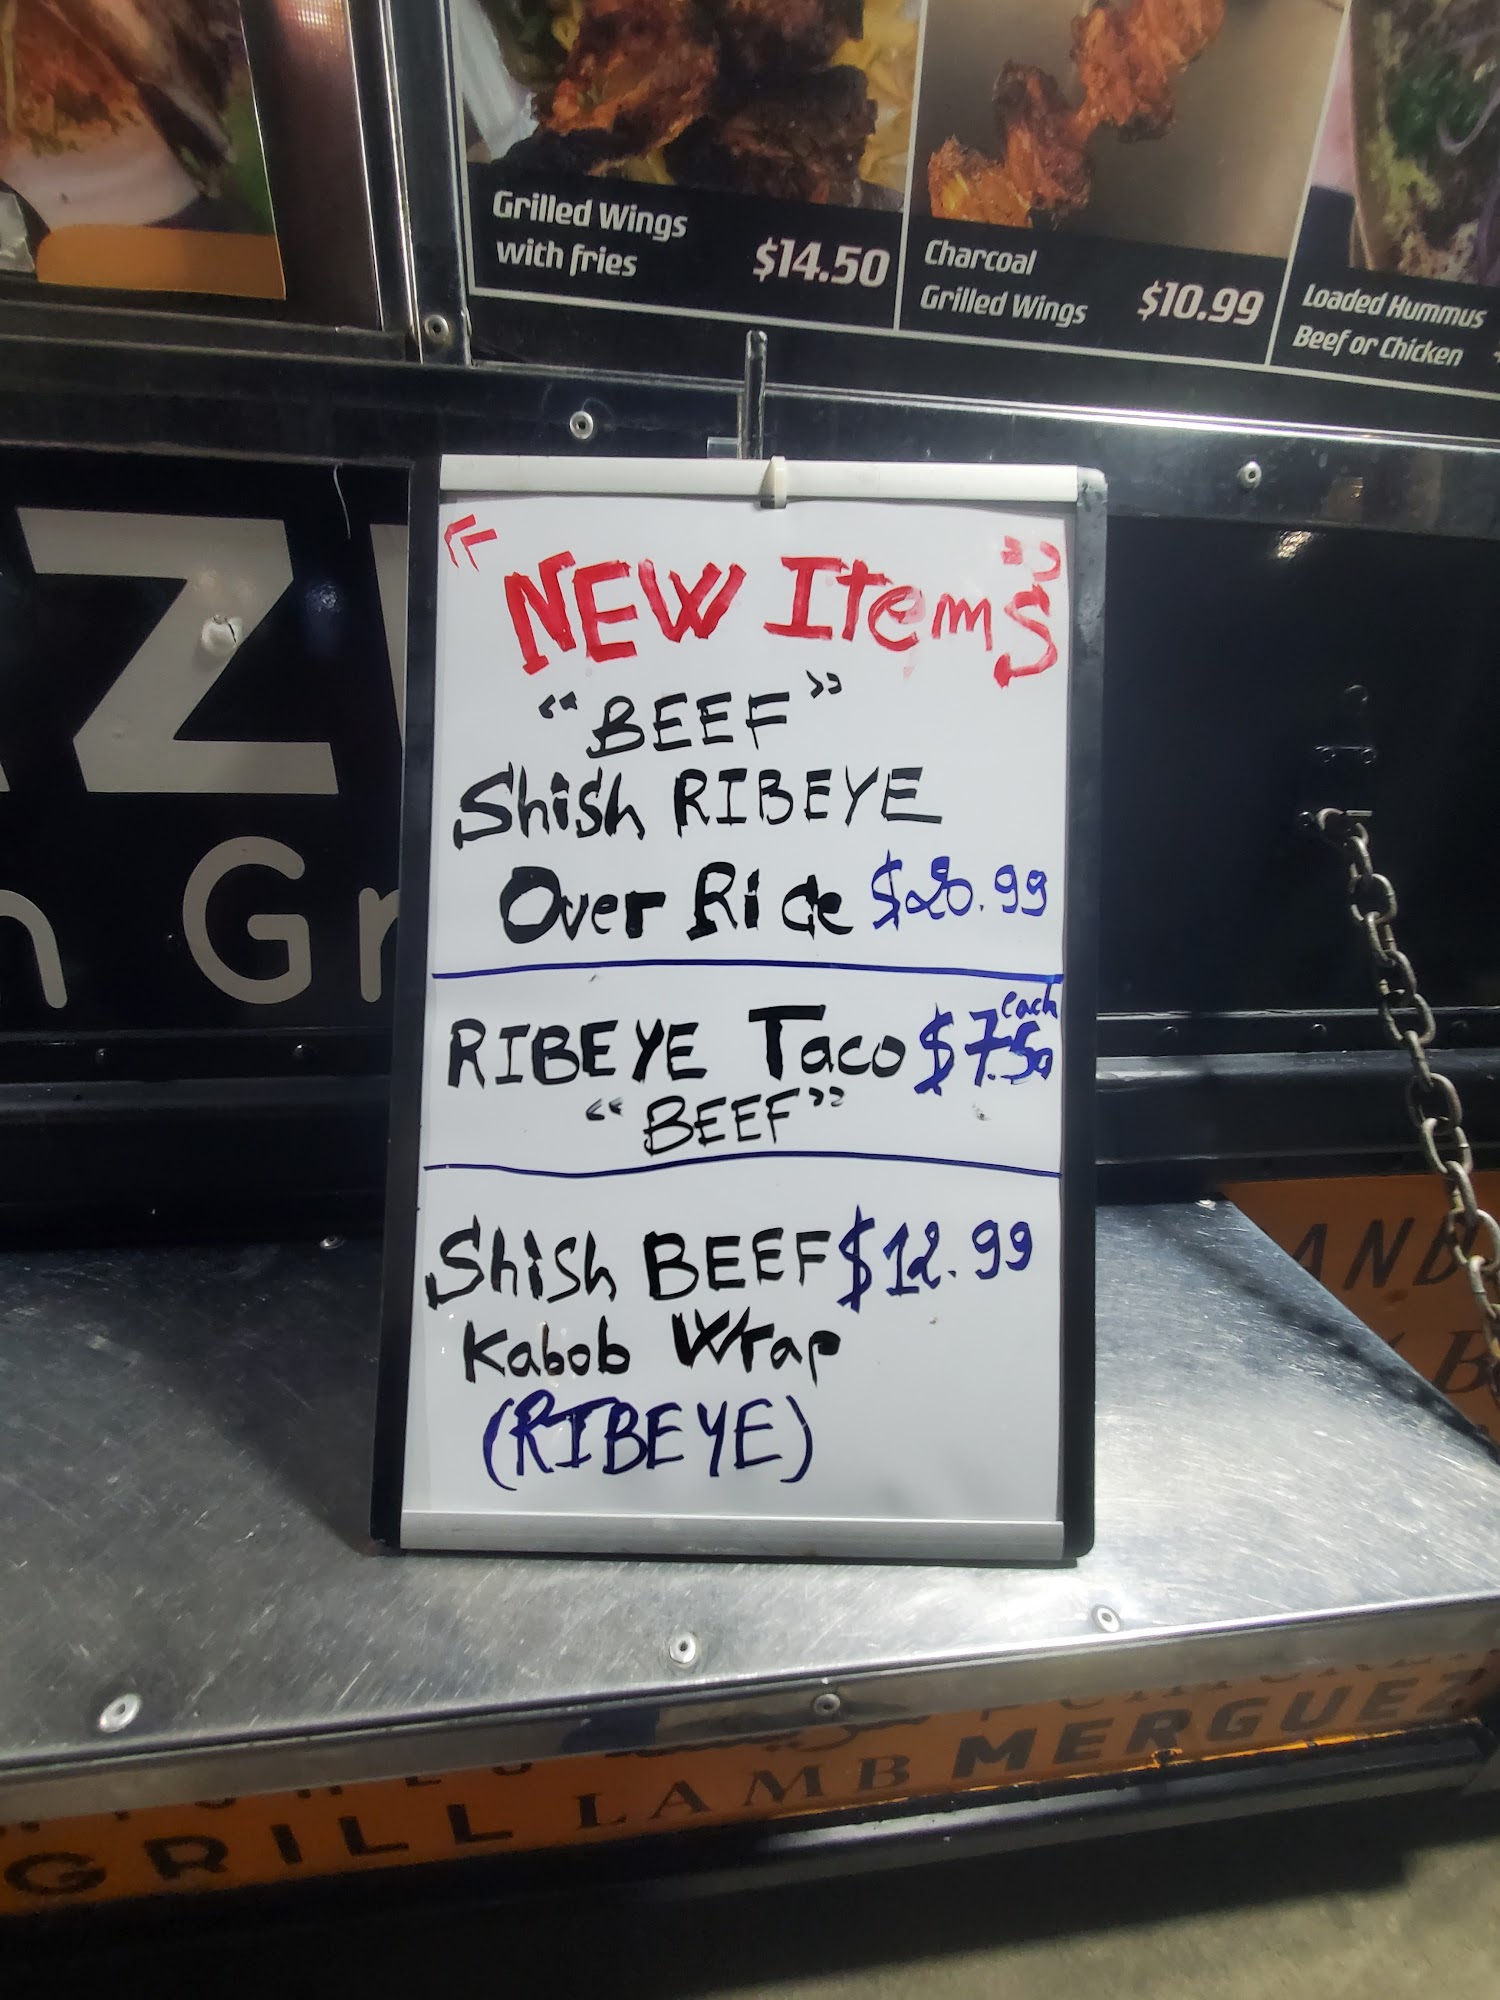 Grilled Wings
with fries $14.50
Charcoal
Grilled Wings $10.99
Loaded Hummus
Beef or Chicken
Gr
"NEW Items"
"BEEF"
Shish RIBEYE
Over Rice $20.99
RIBEYE Taco $7.50 each
"BEEF"
Shish BEEF $12.99
Kabob Wrap
(RIBEYE)
GRILL LAMB MERGUEZ